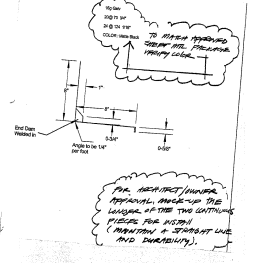 16g Galv
20@ 70 3/4"
24 @ 124 1/16"
COLOR: Matte Black
TO MATCH APPROVED
SHEET MTL PACKAGE
VERIFY COLOR
1"
9"
8"
End Dam
Welded in
5-3/4"
0-5/8"
Angle to be 1/4"
per foot
FOR ARCHITECT/OWNER
APPROVAL, MOCK-UP THE
LONGER OF THE TWO CONTINUOUS
PIECES FOR INSTALL
(MAINTAIN A STRAIGHT LINE
AND DURABILITY).